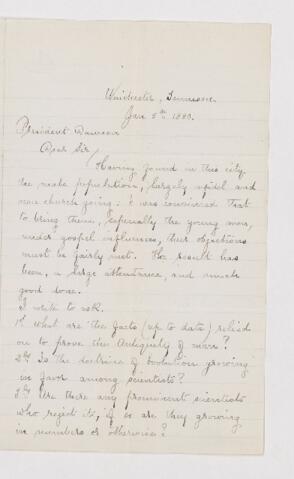 Winchester, Tennessee.
Jan 5th 1880.
President Dawson
Dear Sir/
Having found in this city,
the male population, largely infidel and
non church going: I was convinced that
to bring them, especially the young men,
under gospel influences, their objections
must be fairly met. The result has
been, a large attendance, and much
good done.
I write to ask.
1st What are the facts (up to date) relied
on to prove the Antiquity of man?
2nd Is the doctrine of Evolution growing
in favor among scientists?
3rd Are there any prominent scientists
who reject it; if so are they growing
in numbers or otherwise?